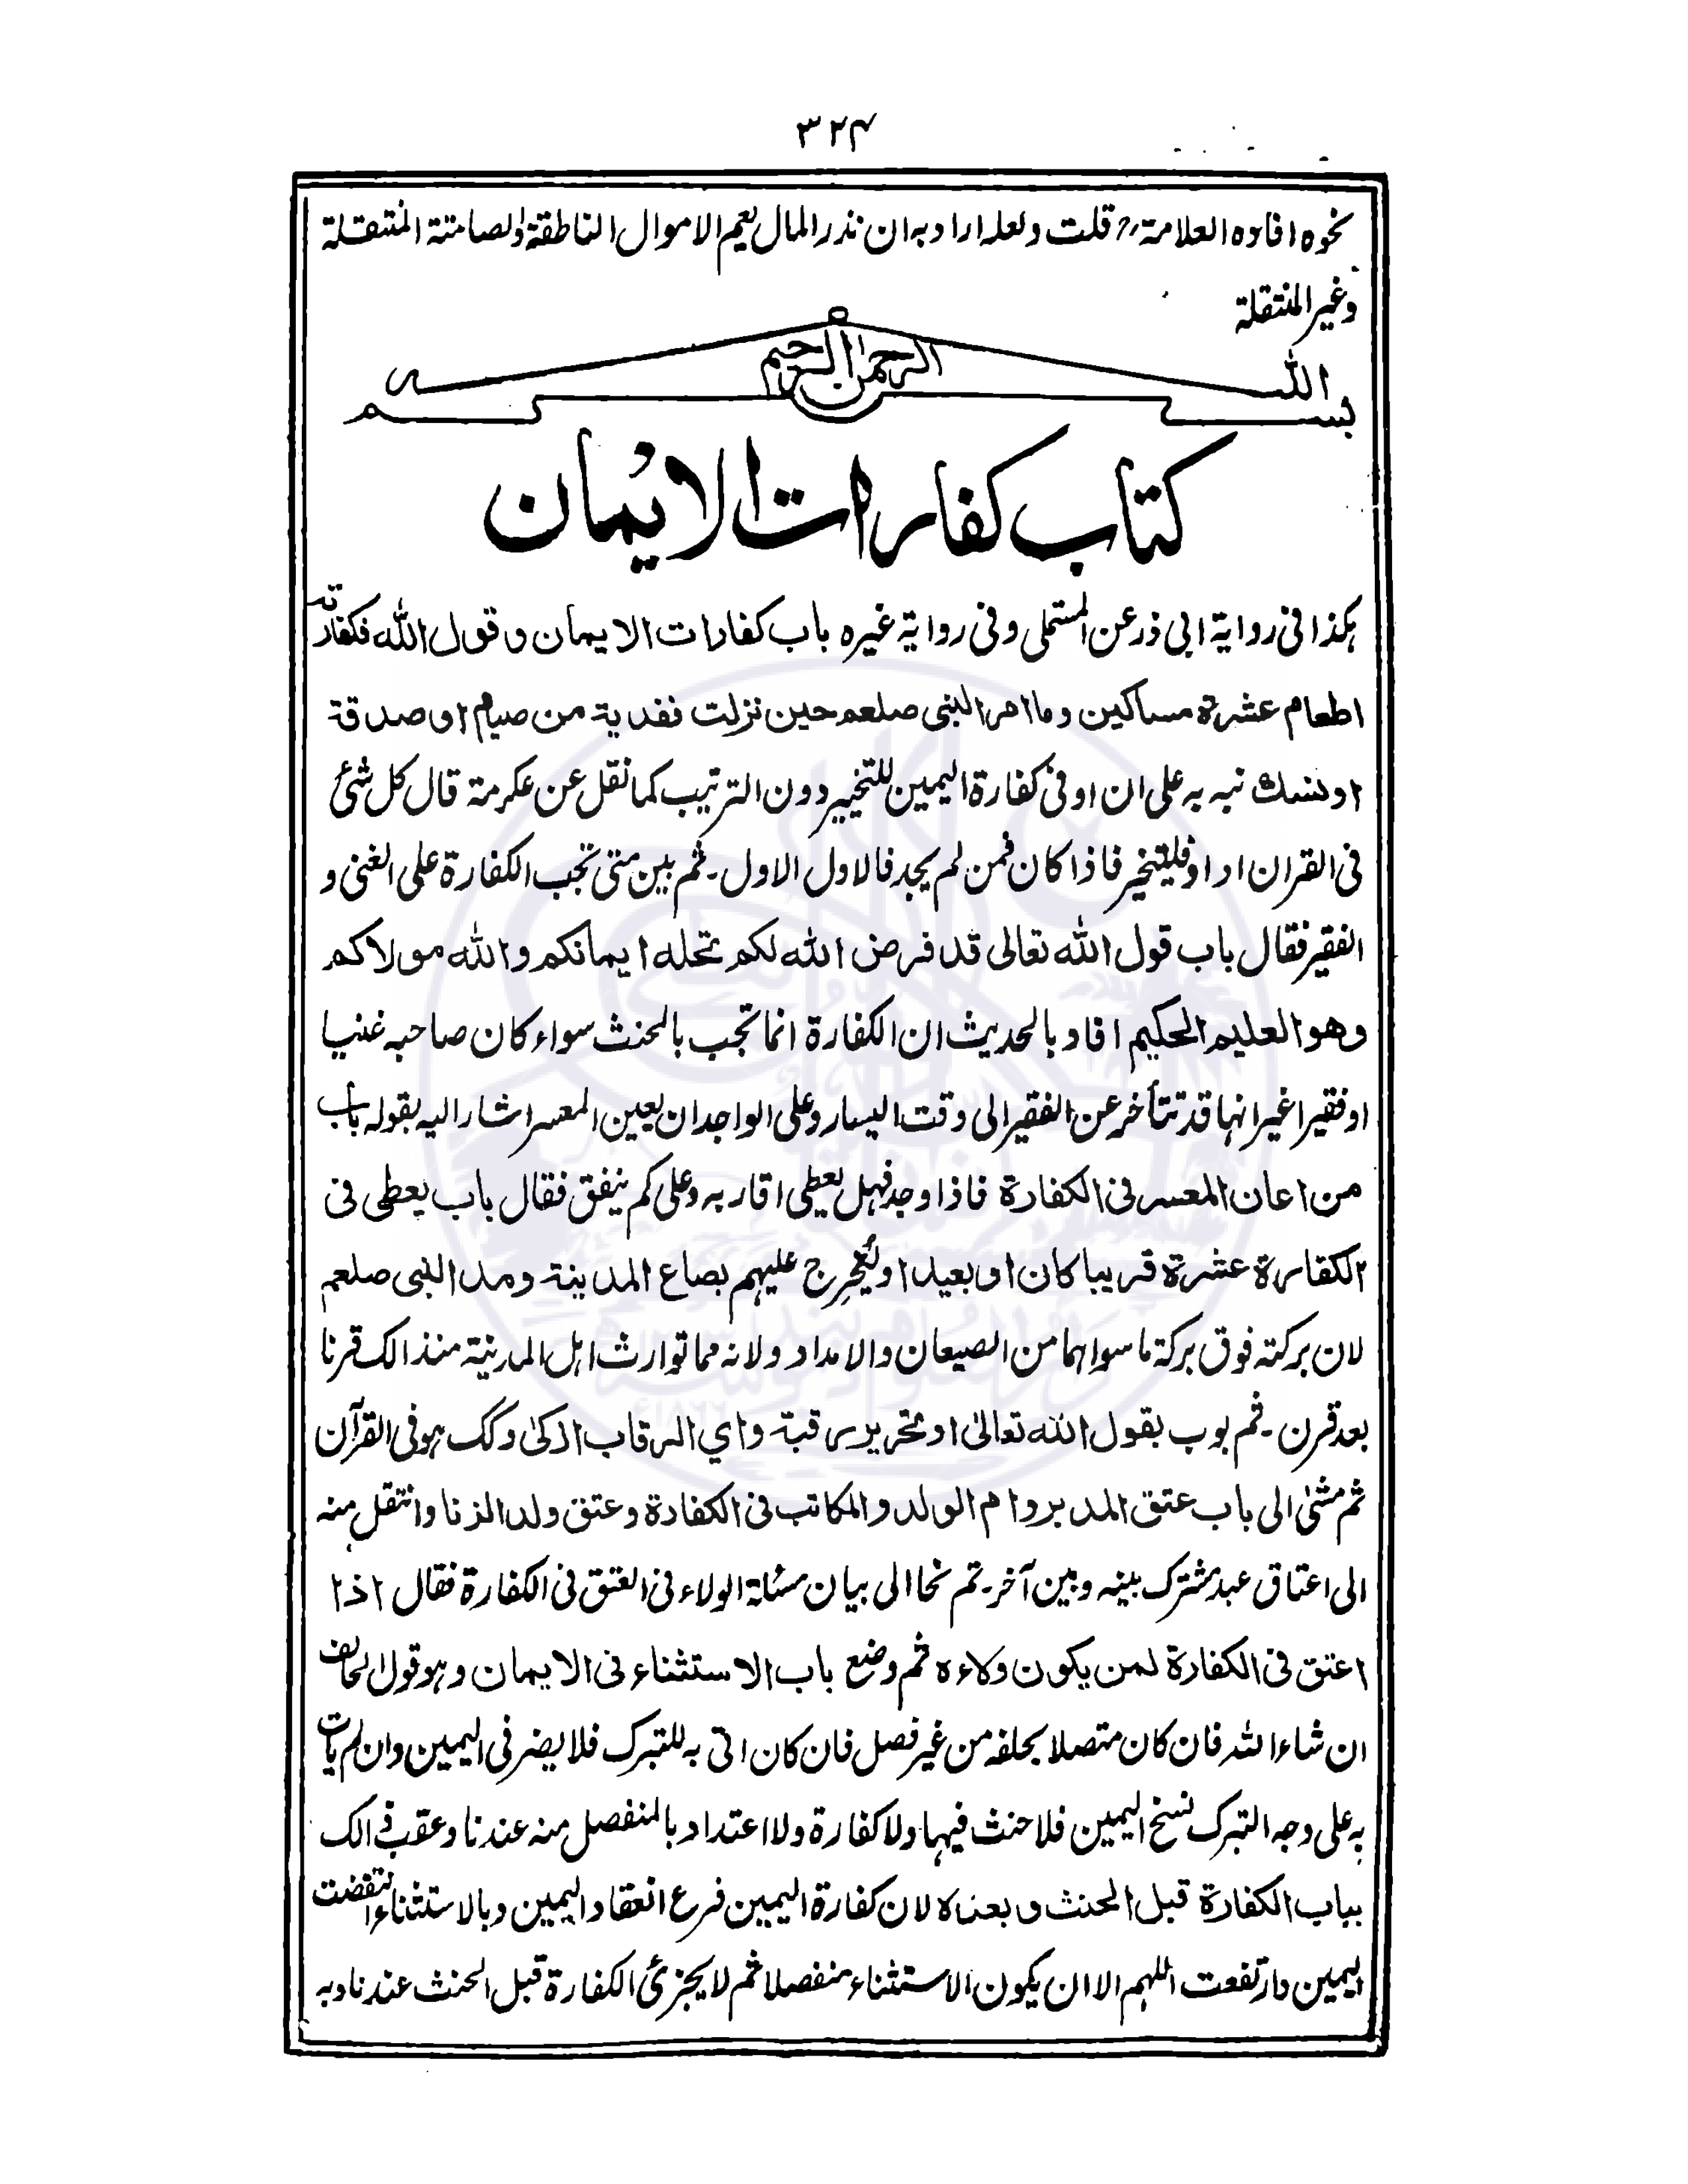 ٣٢٤
نحوه افاده العلامة؍؍ قلت ولعله اراد به ان نذر المال يعم الاموال الناطقة والصامتة المنتقلة
وغير المنتقلة
بسم الله الرحمن الرحيم
كتاب كفارات الايمان
هكذا فی رواية ابی ذر عن المستملی وفی رواية غيره باب كفارات الايمان وقول الله فكفارته
اطعام عشرة مساكين وما امر النبی صلعم حين نزلت ففدية من صيام او صدقة
او نسك نبه به علی ان او فی كفارة اليمين للتخيير دون الترتيب كما نقل عن عكرمة قال كل شئ
فی القران او او فليتخير فاذا كان فمن لم يجد فالاول الاول۔ ثم بين متی تجب الكفارة علی الغنی و
الفقير فقال باب قول الله تعالی قد فرض الله لكم تحله ايمانكم والله مولاكم
وهو العليم الحكيم افاد بالحديث ان الكفارة انما تجب بالحنث سواء كان صاحبه غنيا
او فقيرا غير انها قد تتأخر عن الفقير الی وقت اليسار وعلی الواجد ان يعين المعسر اشار اليه بقوله باب
من اعان المعسر فی الكفارة فاذا وجد فهل يعطی اقاربه وعلی كم ينفق فقال باب يعطی فی
الكفارة عشرة قريبا كان او بعيدا وليخرج عليهم بصاع المدينة ومد النبی صلعم
لان بركته فوق بركة ما سواهما من الصيعان والامداد ولانه مما توارث اهل المدينة منذ الك قرنا
بعد قرن۔ ثم بوب بقول الله تعالیٰ او تحرير رقبة وای الرقاب ازكیٰ وكك هو فی القرآن
ثم مشیٰ الی باب عتق المدبر وام الولد والمكاتب فی الكفارة وعتق ولد الزنا وانتقل منه
الی اعتاق عبد مشترك بينه وبين آخر۔ ثم نحا الی بيان مسئلة الولاء فی العتق فی الكفارة فقال اذا
اعتق فی الكفارة لمن يكون ولاءه ثم وضع باب الاستثناء فی الايمان وهو قول الحالف
ان شاء الله فان كان متصلا بحلفه من غير فصل فان كان اتی به للتبرك فلا يضر فی اليمين وان لم يات
به علی وجه التبرك نسخ اليمين فلا حنث فيها ولا كفارة ولا اعتداد بالمنفصل منه عندنا وعقب ذالك
بباب الكفارة قبل الحنث وبعده لان كفارة اليمين فرع انعقاد اليمين وبالاستثناء انتقضت
اليمين وارتفعت اللهم الا ان يكون الاستثناء منفصلا ثم لا يجزئ الكفارة قبل الحنث عندنا وبه